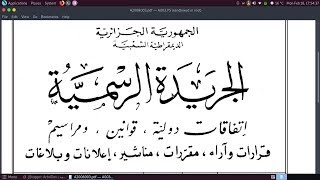 Applications Places
A2008003.pdf — AGELPS
Mon Feb 18, 17:54:37
الجمهورية الجزائرية
الديمقراطية الشعبية
الجريدة الرسمية
إتفاقات دولية ، قوانين ، ومراسيم
قرارات وآراء ، مقررات ، مناشير ، إعلانات وبلاغات